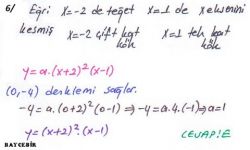 6/ Eğri x=-2 de teğet x=1 de x eksenini
kesmiş x=-2 çift kat kök x=1 tek kat kök
y=a.(x+2)²(x-1)
(0,-4) denklemi sağlar.
-4=a.(0+2)²(0-1) ⇒ -4=a.4.(-1) ⇒ a=1
y=(x+2)²(x-1)
CEVAP:E
BAYCEBİR